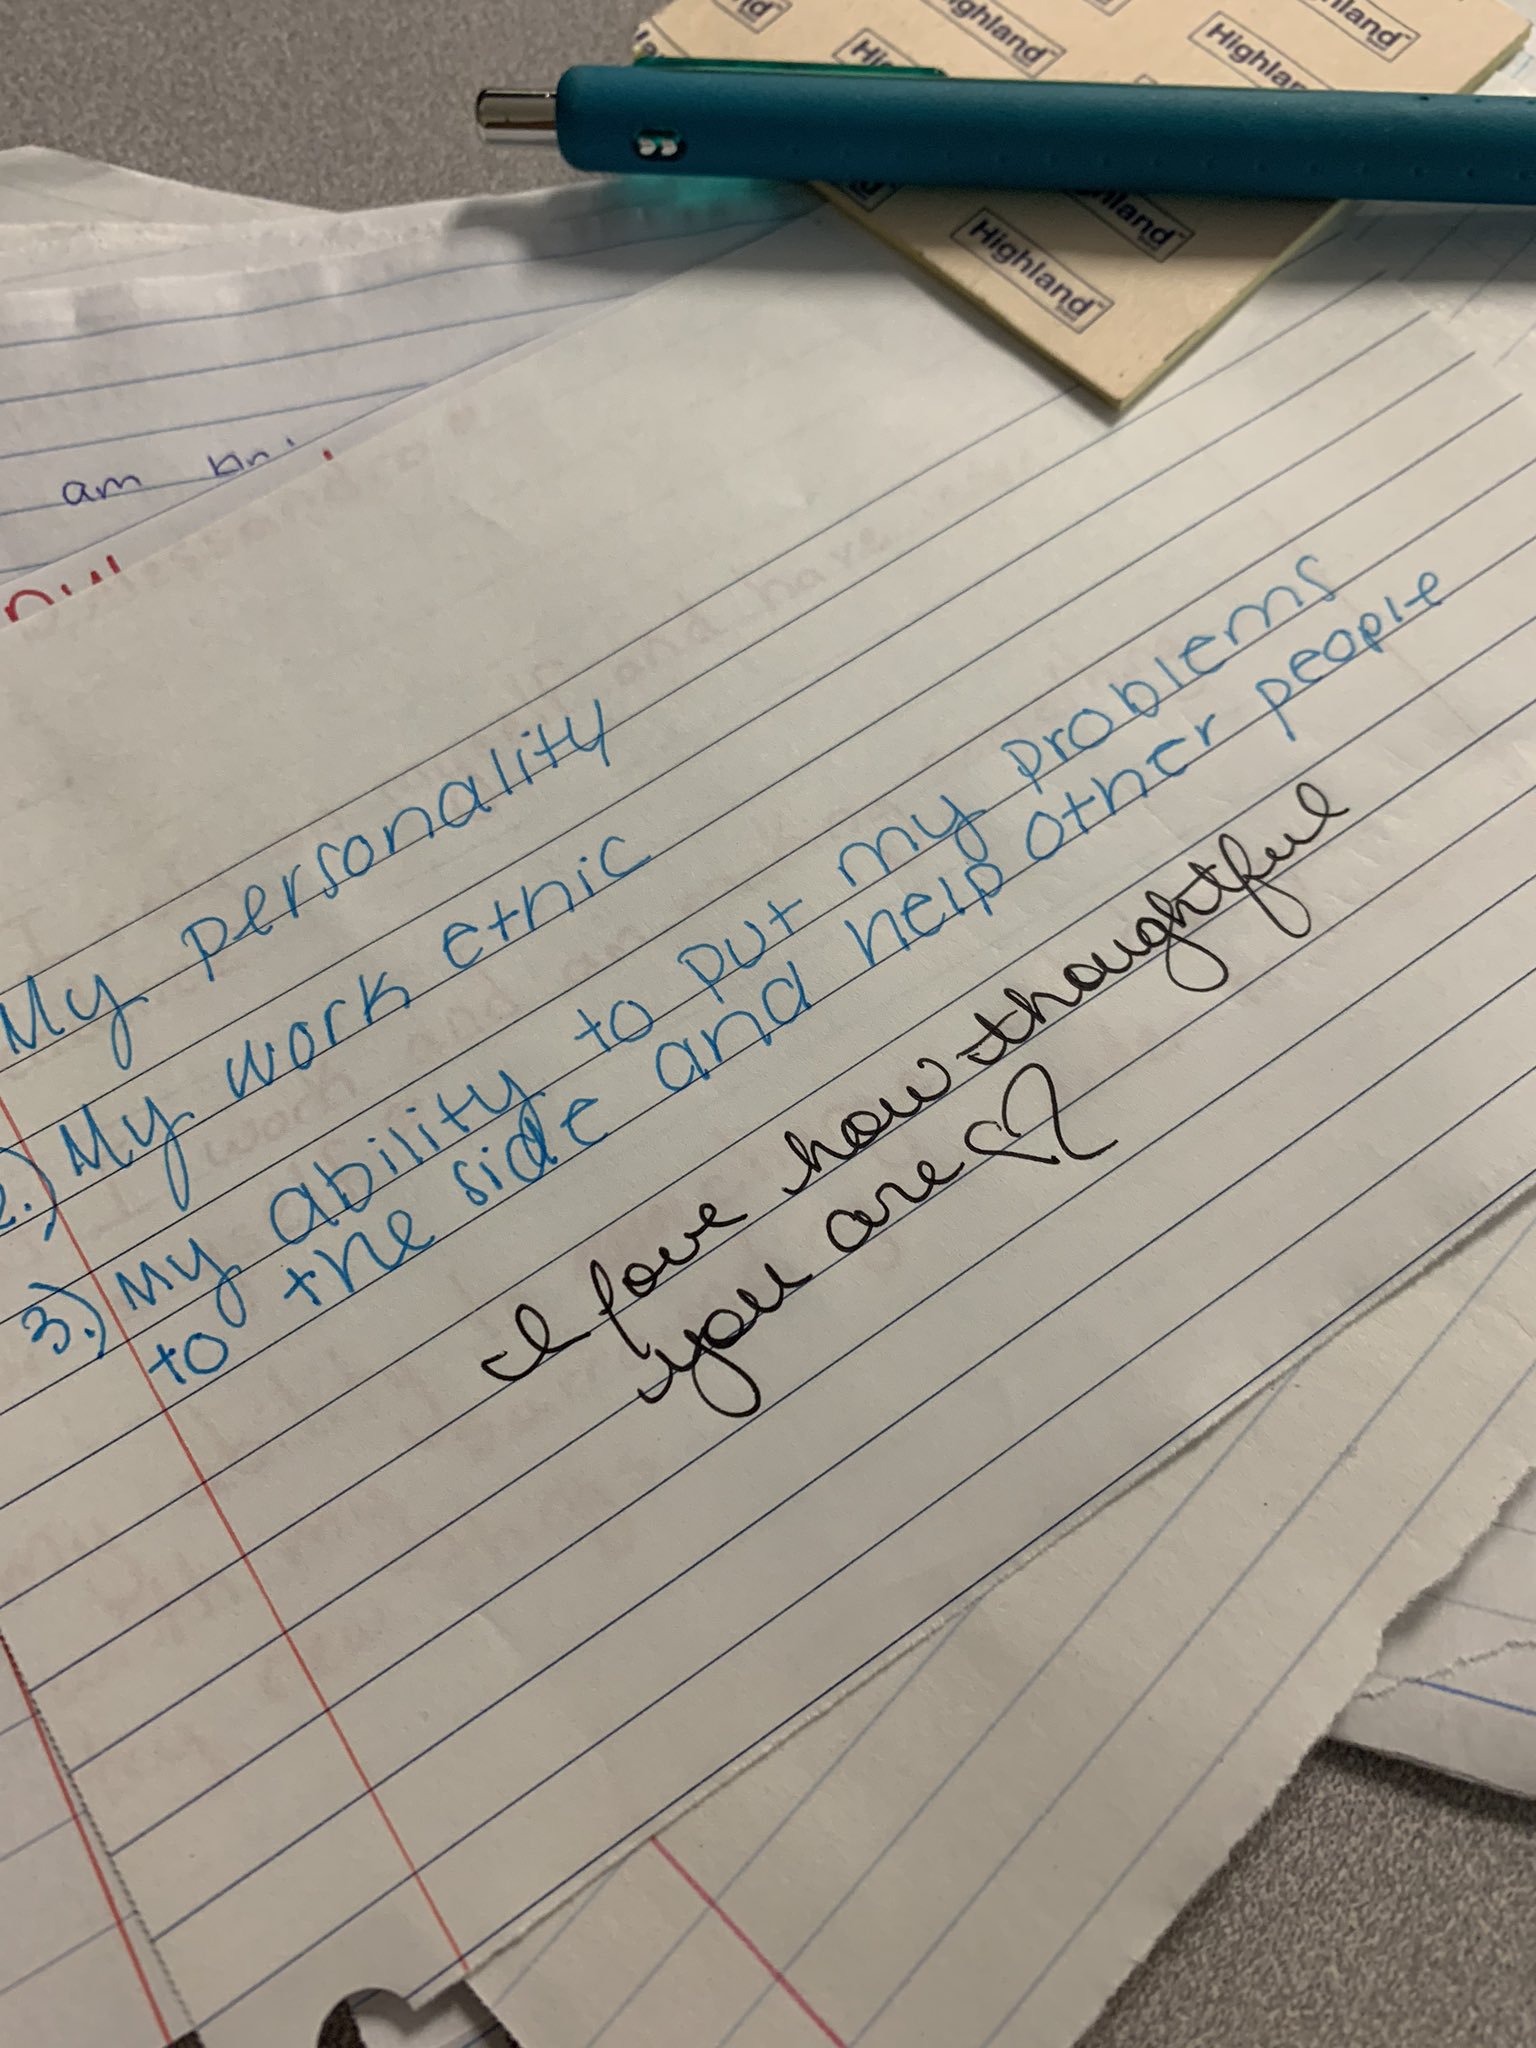 Highland
Highland
Highland
Highland
am
My personality
2.) My work ethic
3.) My ability to put my problems
to the side and help other people
I love how thoughtful
you are